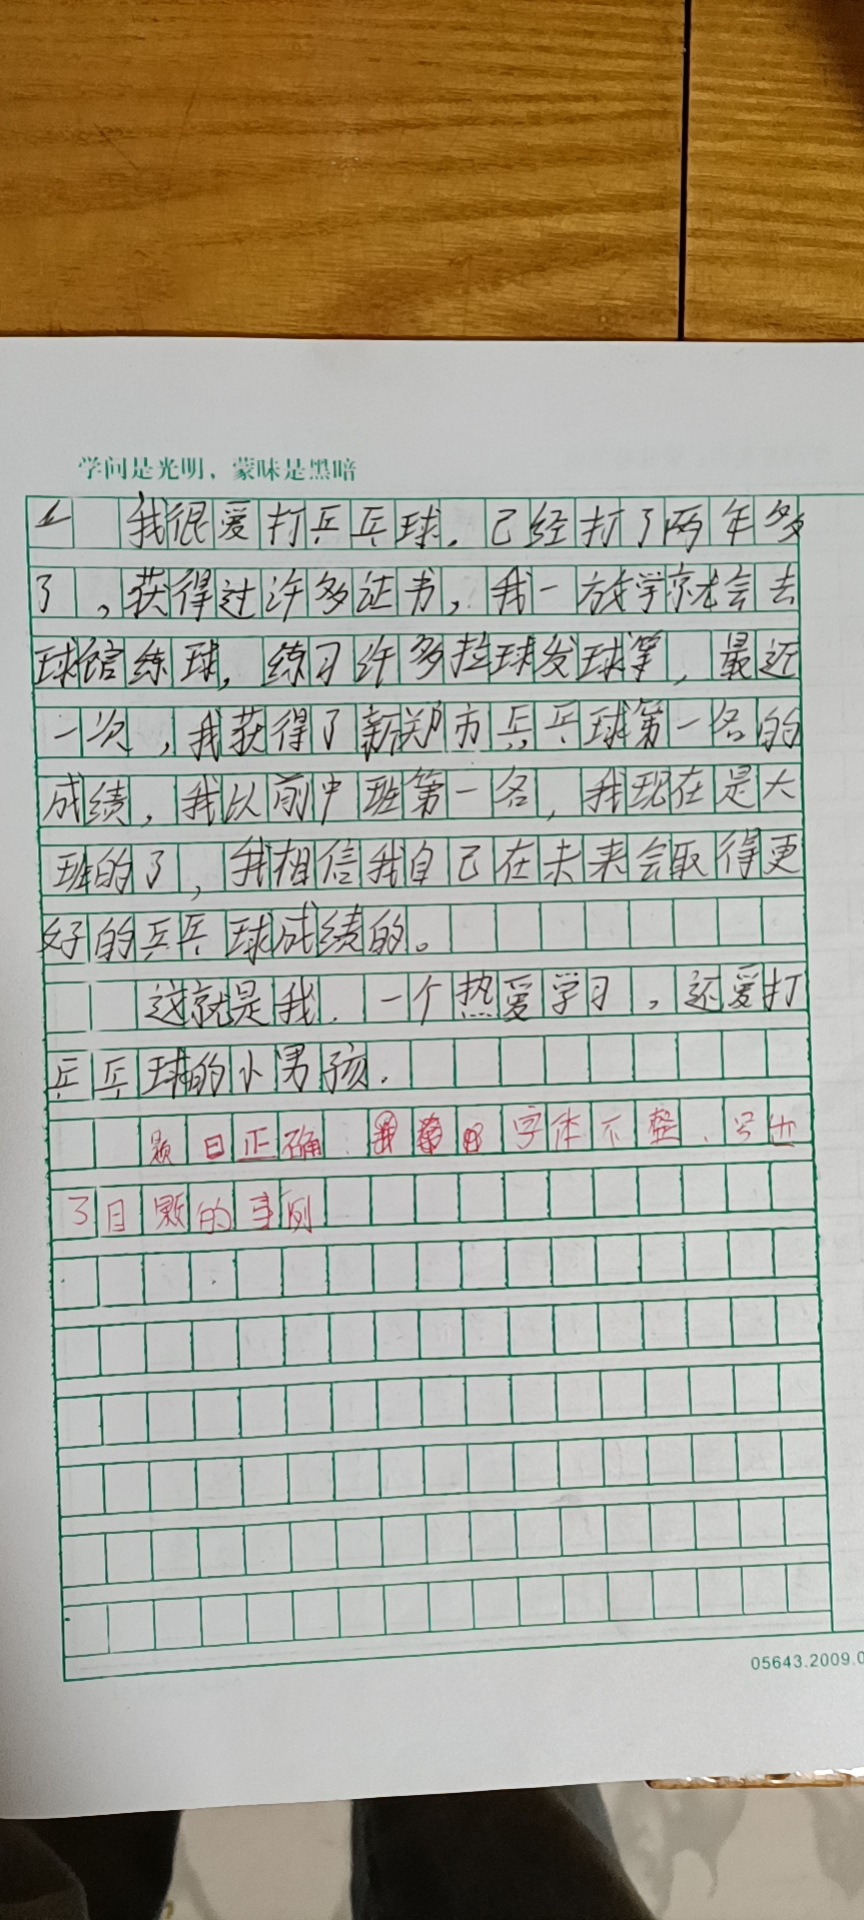 学问是光明，蒙昧是黑暗
我很爱打乒乓球，已经打了两年多
了，获得过许多证书，我一放学就会去
球馆练球，练习许多拉球发球等，最近
一次，我获得了新郑市乒乓球第一名的
成绩，我以前中班第一名，我现在是大
班的了，我相信我自己在未来会取得更
好的乒乓球成绩的。
这就是我．一个热爱学习，还爱打
乒乓球的小男孩．
题目正确．字体不整、写出
了目的事例
05643.2009.0